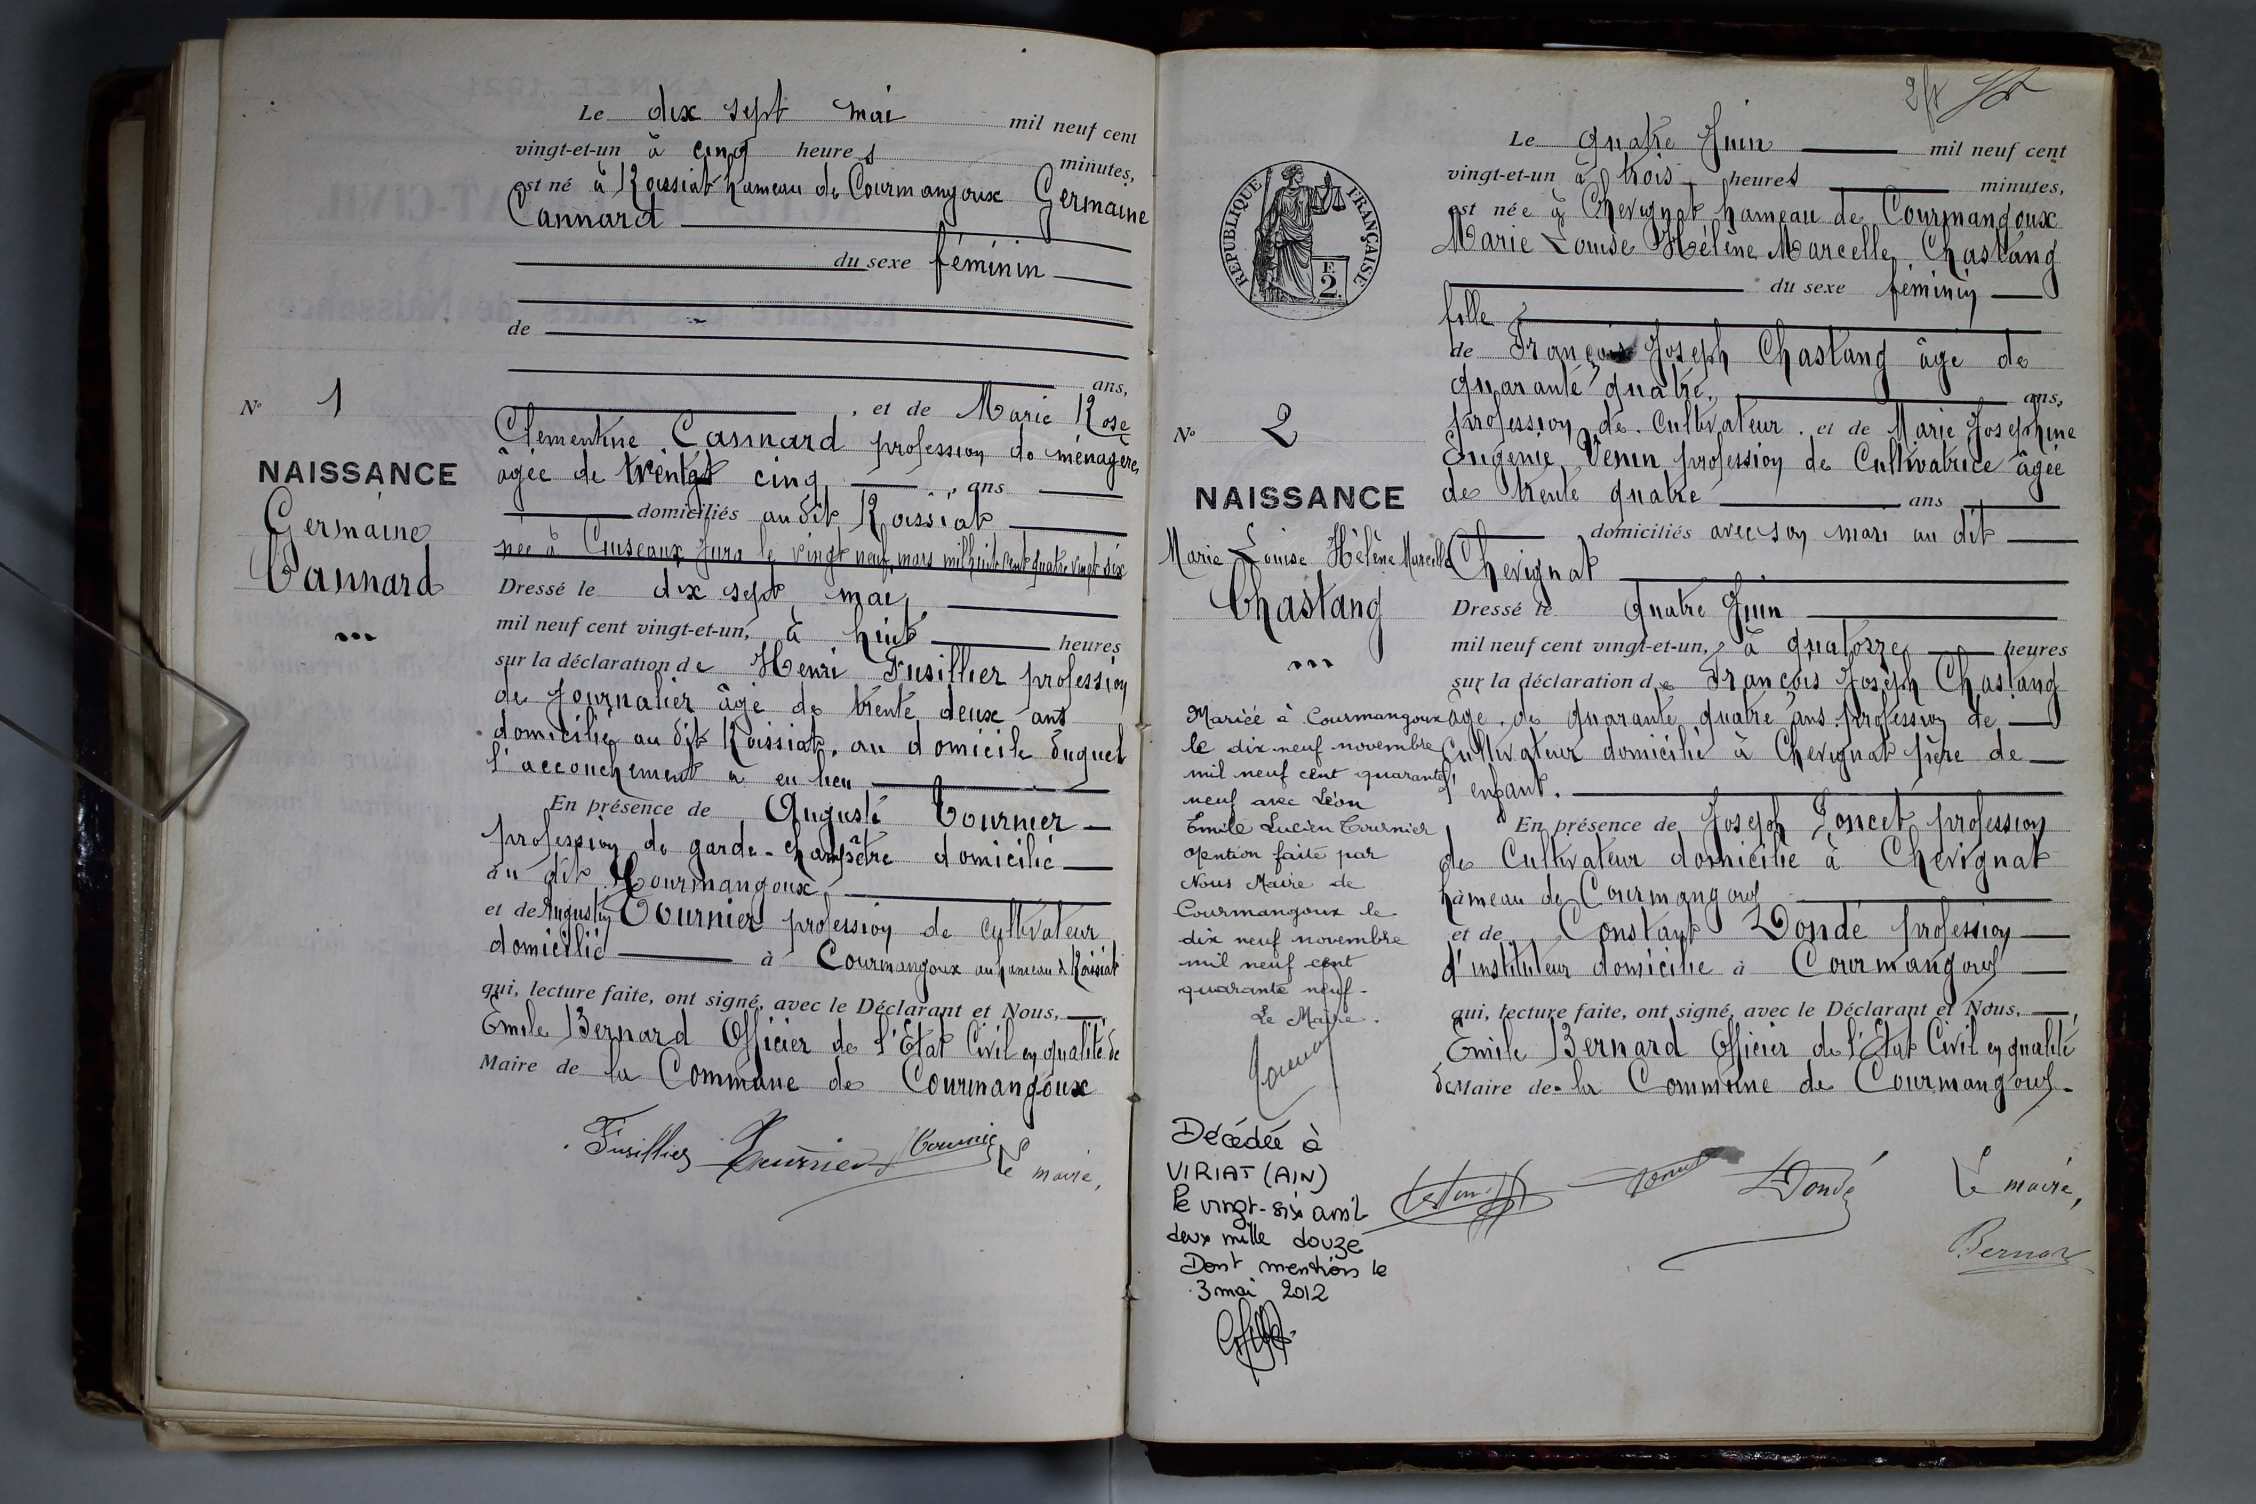 Le dix sept mai mil neuf cent
vingt-et-un à cinq heures minutes,
est né à Roissiat hameau de Courmangoux Germaine
Cannard
du sexe féminin
de
ans,
, et de Marie Rose
Clementine Cannard profession de ménagère,
âgée de trente cinq , ans
domiciliés au dit Roissiat
née à Cuiseaux Jura le vingt neuf mars mil huit cent quatre vingt six
Dressé le dix sept mai,
mil neuf cent vingt-et-un, à huit heures
sur la déclaration de Henri Fusillier profession
de journalier âgé de trente deux ans
domicilié au dit Roissiat, au domicile duquel
l'accouchement a eu lieu
En présence de Auguste Tournier
profession de garde-champêtre domicilié
au dit Courmangoux,
et de Augustin Tournier profession de cultivateur
domicilié à Courmangoux au hameau de Roissiat
qui, lecture faite, ont signé, avec le Déclarant et Nous,
Emile Bernard Officier de l'Etat Civil en qualité de
Maire de la Commune de Courmangoux
Fusillier Tournier Tournier Le maire,
No 1
NAISSANCE
Germaine
Cannard
Le quatre Juin mil neuf cent
vingt-et-un à trois heures minutes,
est née à Chevignat hameau de Courmangoux
Marie Louise Hélène Marcelle Chastang
du sexe féminin
fille
de François Joseph Chastang âgé de
quarante quatre, ans,
profession de Cultivateur, et de Marie Josephine
Eugénie Venin profession de Cultivatrice âgée
de trente quatre ans
domiciliés avec son mari au dit
Chevignat
Dressé le quatre Juin
mil neuf cent vingt-et-un, à quatorze heures
sur la déclaration de François Joseph Chastang
âgé de quarante quatre ans profession de
Cultivateur domicilié à Chevignat père de
l'enfant.
En présence de Joseph Poncet profession
de Cultivateur domicilié à Chevignat
hameau de Courmangoux
et de Constant Dondé profession
d'instituteur domicilié à Courmangoux
qui, lecture faite, ont signé, avec le Déclarant et Nous,
Emile Bernard Officier de l'Etat Civil en qualité
de Maire de la Commune de Courmangoux
Dondé Le maire,
Bernard
RÉPUBLIQUE FRANÇAISE
F.
2
No 2
NAISSANCE
Marie Louise Hélène Marcelle
Chastang
Mariée à Courmangoux
le dix neuf novembre
mil neuf cent quarante
neuf avec Léon
Emile Lucien Tournier
Mention faite par
Nous Maire de
Courmangoux le
dix neuf novembre
mil neuf cent
quarante neuf.
Le Maire.
Décédée à
VIRIAT (AIN)
le vingt-six avril
deux mille douze
Dont mention le
3 mai 2012